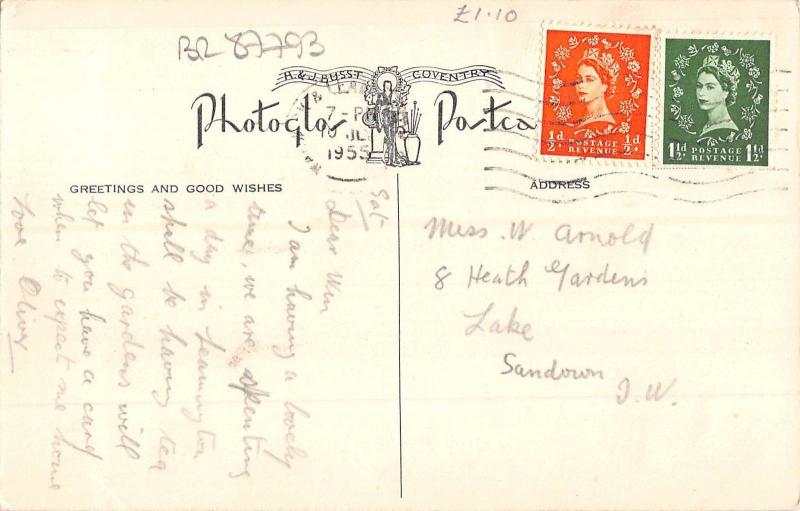 £1.10
BR 87793
H. & J. BUSST COVENTRY
Photoglos Postca
7-PM
JL
1955
½d ½d
POSTAGE
REVENUE
1½d 1½d
POSTAGE
REVENUE
GREETINGS AND GOOD WISHES
ADDRESS
Sat
Dear Win
I am having a lovely
time, we are spenting
a day in Leamington
shall be having tea
in the gardens will
let you have a card
when to expect me home
love Oliver
Miss. W. Arnold
8 Heath Gardens
Lake
Sandown
I.W.